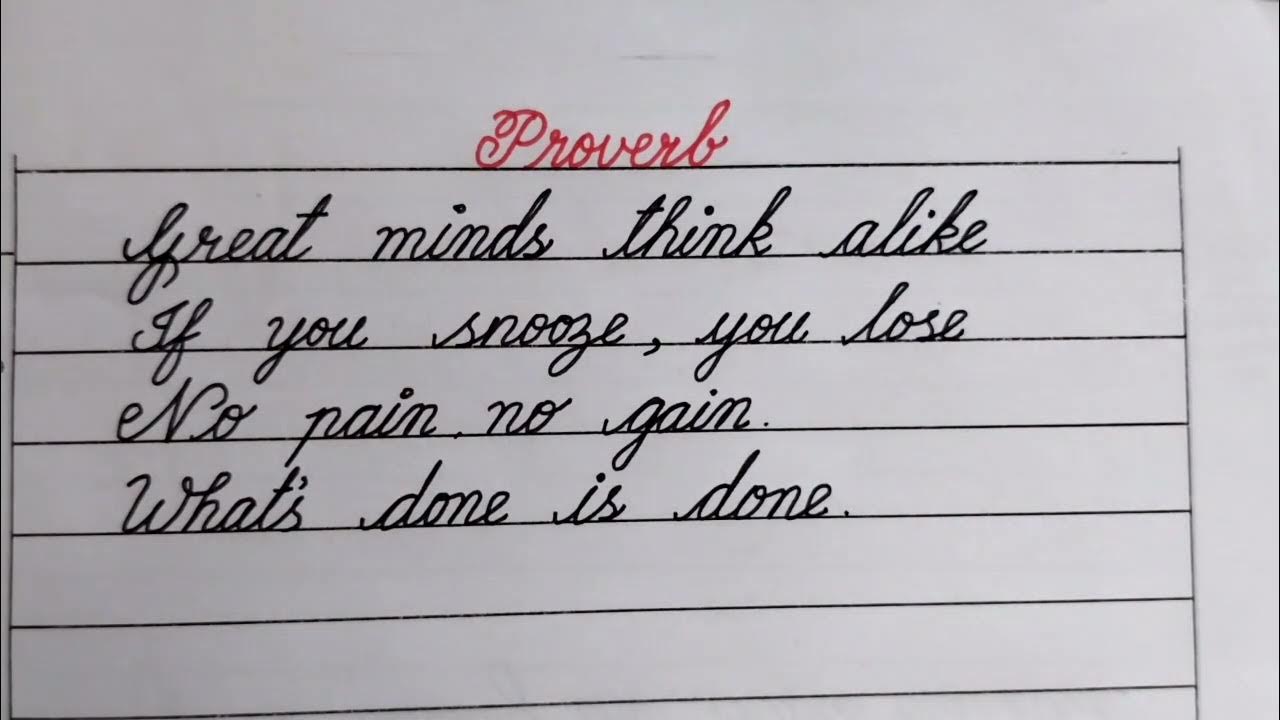 Proverb
Great minds think alike
If you snooze, you lose
No pain. no gain.
What's done is done.